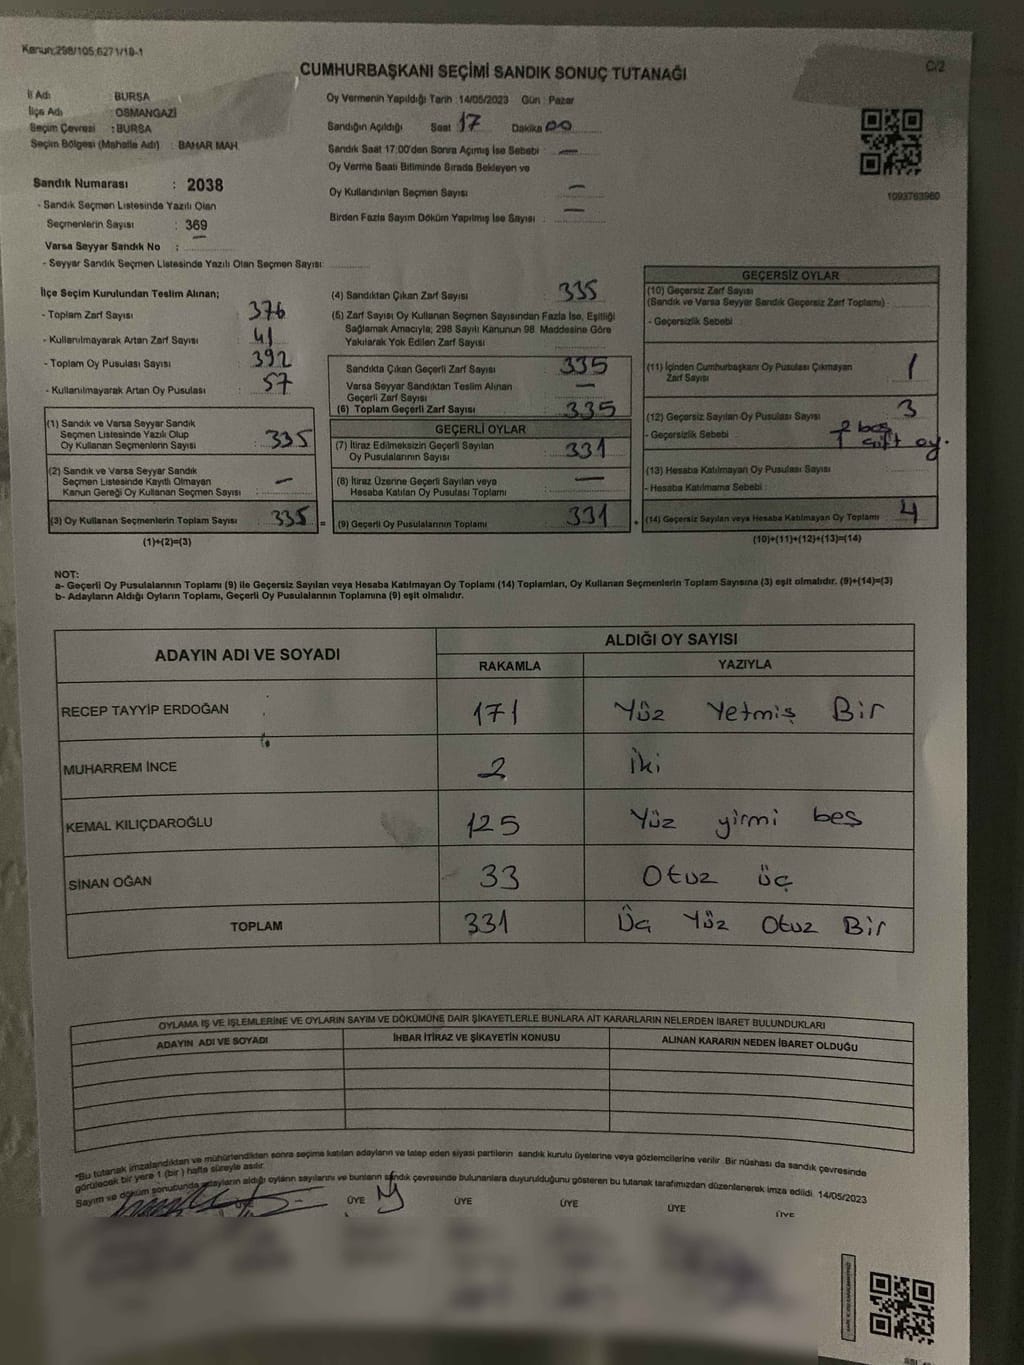 Kanun;298/105;6271/19-1
C/2
CUMHURBAŞKANI SEÇİMİ SANDIK SONUÇ TUTANAĞI
İl Adı : BURSA
İlçe Adı : OSMANGAZİ
Seçim Çevresi : BURSA
Seçim Bölgesi (Mahalle Adı) : BAHAR MAH.
Sandık Numarası : 2038
- Sandık Seçmen Listesinde Yazılı Olan
Seçmenlerin Sayısı : 369
Varsa Seyyar Sandık No : —
- Seyyar Sandık Seçmen Listesinde Yazılı Olan Seçmen Sayısı:
Oy Vermenin Yapıldığı Tarih : 14/05/2023 Gün : Pazar
Sandığın Açıldığı Saat 17 Dakika 00
Sandık Saat 17:00'den Sonra Açımış İse Sebebi : —
Oy Verme Saati Bitiminde Sırada Bekleyen ve
Oy Kullandırılan Seçmen Sayısı —
Birden Fazla Sayım Döküm Yapılmış İse Sayısı : —
1093763960
İlçe Seçim Kurulundan Teslim Alınan;
- Toplam Zarf Sayısı : 376
- Kullanılmayarak Artan Zarf Sayısı : 41
- Toplam Oy Pusulası Sayısı : 392
- Kullanılmayarak Artan Oy Pusulası : 57
(1) Sandık ve Varsa Seyyar Sandık
Seçmen Listesinde Yazılı Olup
Oy Kullanan Seçmenlerin Sayısı : 335
(2) Sandık ve Varsa Seyyar Sandık
Seçmen Listesinde Kayıtlı Olmayan
Kanun Gereği Oy Kullanan Seçmen Sayısı : —
(3) Oy Kullanan Seçmenlerin Toplam Sayısı : 335 =
(1)+(2)=(3)
(4) Sandıktan Çıkan Zarf Sayısı : 335
(5) Zarf Sayısı Oy Kullanan Seçmen Sayısından Fazla İse, Eşitliği
Sağlamak Amacıyla; 298 Sayılı Kanunun 98. Maddesine Göre
Yakılarak Yok Edilen Zarf Sayısı :
Sandıkta Çıkan Geçerli Zarf Sayısı : 335
Varsa Seyyar Sandıktan Teslim Alınan
Geçerli Zarf Sayısı : —
(6) Toplam Geçerli Zarf Sayısı : 335
GEÇERLİ OYLAR
(7) İtiraz Edilmeksizin Geçerli Sayılan
Oy Pusulalarının Sayısı : 331
(8) İtiraz Üzerine Geçerli Sayılan veya
Hesaba Katılan Oy Pusulası Toplamı : —
(9) Geçerli Oy Pusulalarının Toplamı : 331 +
GEÇERSİZ OYLAR
(10) Geçersiz Zarf Sayısı
(Sandık ve Varsa Seyyar Sandık Geçersiz Zarf Toplamı) :
- Geçersizlik Sebebi :
(11) İçinden Cumhurbaşkanı Oy Pusulası Çıkmayan
Zarf Sayısı : 1
(12) Geçersiz Sayılan Oy Pusulası Sayısı : 3
- Geçersizlik Sebebi : 2 boş
1 çift oy.
(13) Hesaba Katılmayan Oy Pusulası Sayısı :
- Hesaba Katılmama Sebebi :
(14) Geçersiz Sayılan veya Hesaba Katılmayan Oy Toplamı : 4
(10)+(11)+(12)+(13)=(14)
NOT:
a- Geçerli Oy Pusulalarının Toplamı (9) ile Geçersiz Sayılan veya Hesaba Katılmayan Oy Toplamı (14) Toplamları, Oy Kullanan Seçmenlerin Toplam Sayısına (3) eşit olmalıdır. (9)+(14)=(3)
b- Adayların Aldığı Oyların Toplamı, Geçerli Oy Pusulalarının Toplamına (9) eşit olmalıdır.
ADAYIN ADI VE SOYADI ALDIĞI OY SAYISI
RAKAMLA YAZIYLA
RECEP TAYYİP ERDOĞAN 171 Yüz Yetmiş Bir
MUHARREM İNCE 2 İki
KEMAL KILIÇDAROĞLU 125 Yüz yirmi beş
SİNAN OĞAN 33 Otuz üç
TOPLAM 331 Üç Yüz Otuz Bir
OYLAMA İŞ VE İŞLEMLERİNE VE OYLARIN SAYIM VE DÖKÜMÜNE DAİR ŞİKAYETLERLE BUNLARA AİT KARARLARIN NELERDEN İBARET BULUNDUKLARI
ADAYIN ADI VE SOYADI İHBAR İTİRAZ VE ŞİKAYETİN KONUSU ALINAN KARARIN NEDEN İBARET OLDUĞU
*Bu tutanak imzalandıktan ve mühürlendikten sonra seçime katılan adayların ve talep eden siyasi partilerin sandık kurulu üyelerine veya gözlemcilerine verilir. Bir nüshası da sandık çevresinde
görülecek bir yere 1 (bir ) hafta süreyle asılır.
Sayım ve döküm sonubunda adayların aldığı oyların sayılarını ve bunların sandık çevresinde bulunanlara duyurulduğunu gösteren bu tutanak tarafımızdan düzenlenerek imza edildi. 14/05/2023
ÜYE ÜYE ÜYE ÜYE ÜYE